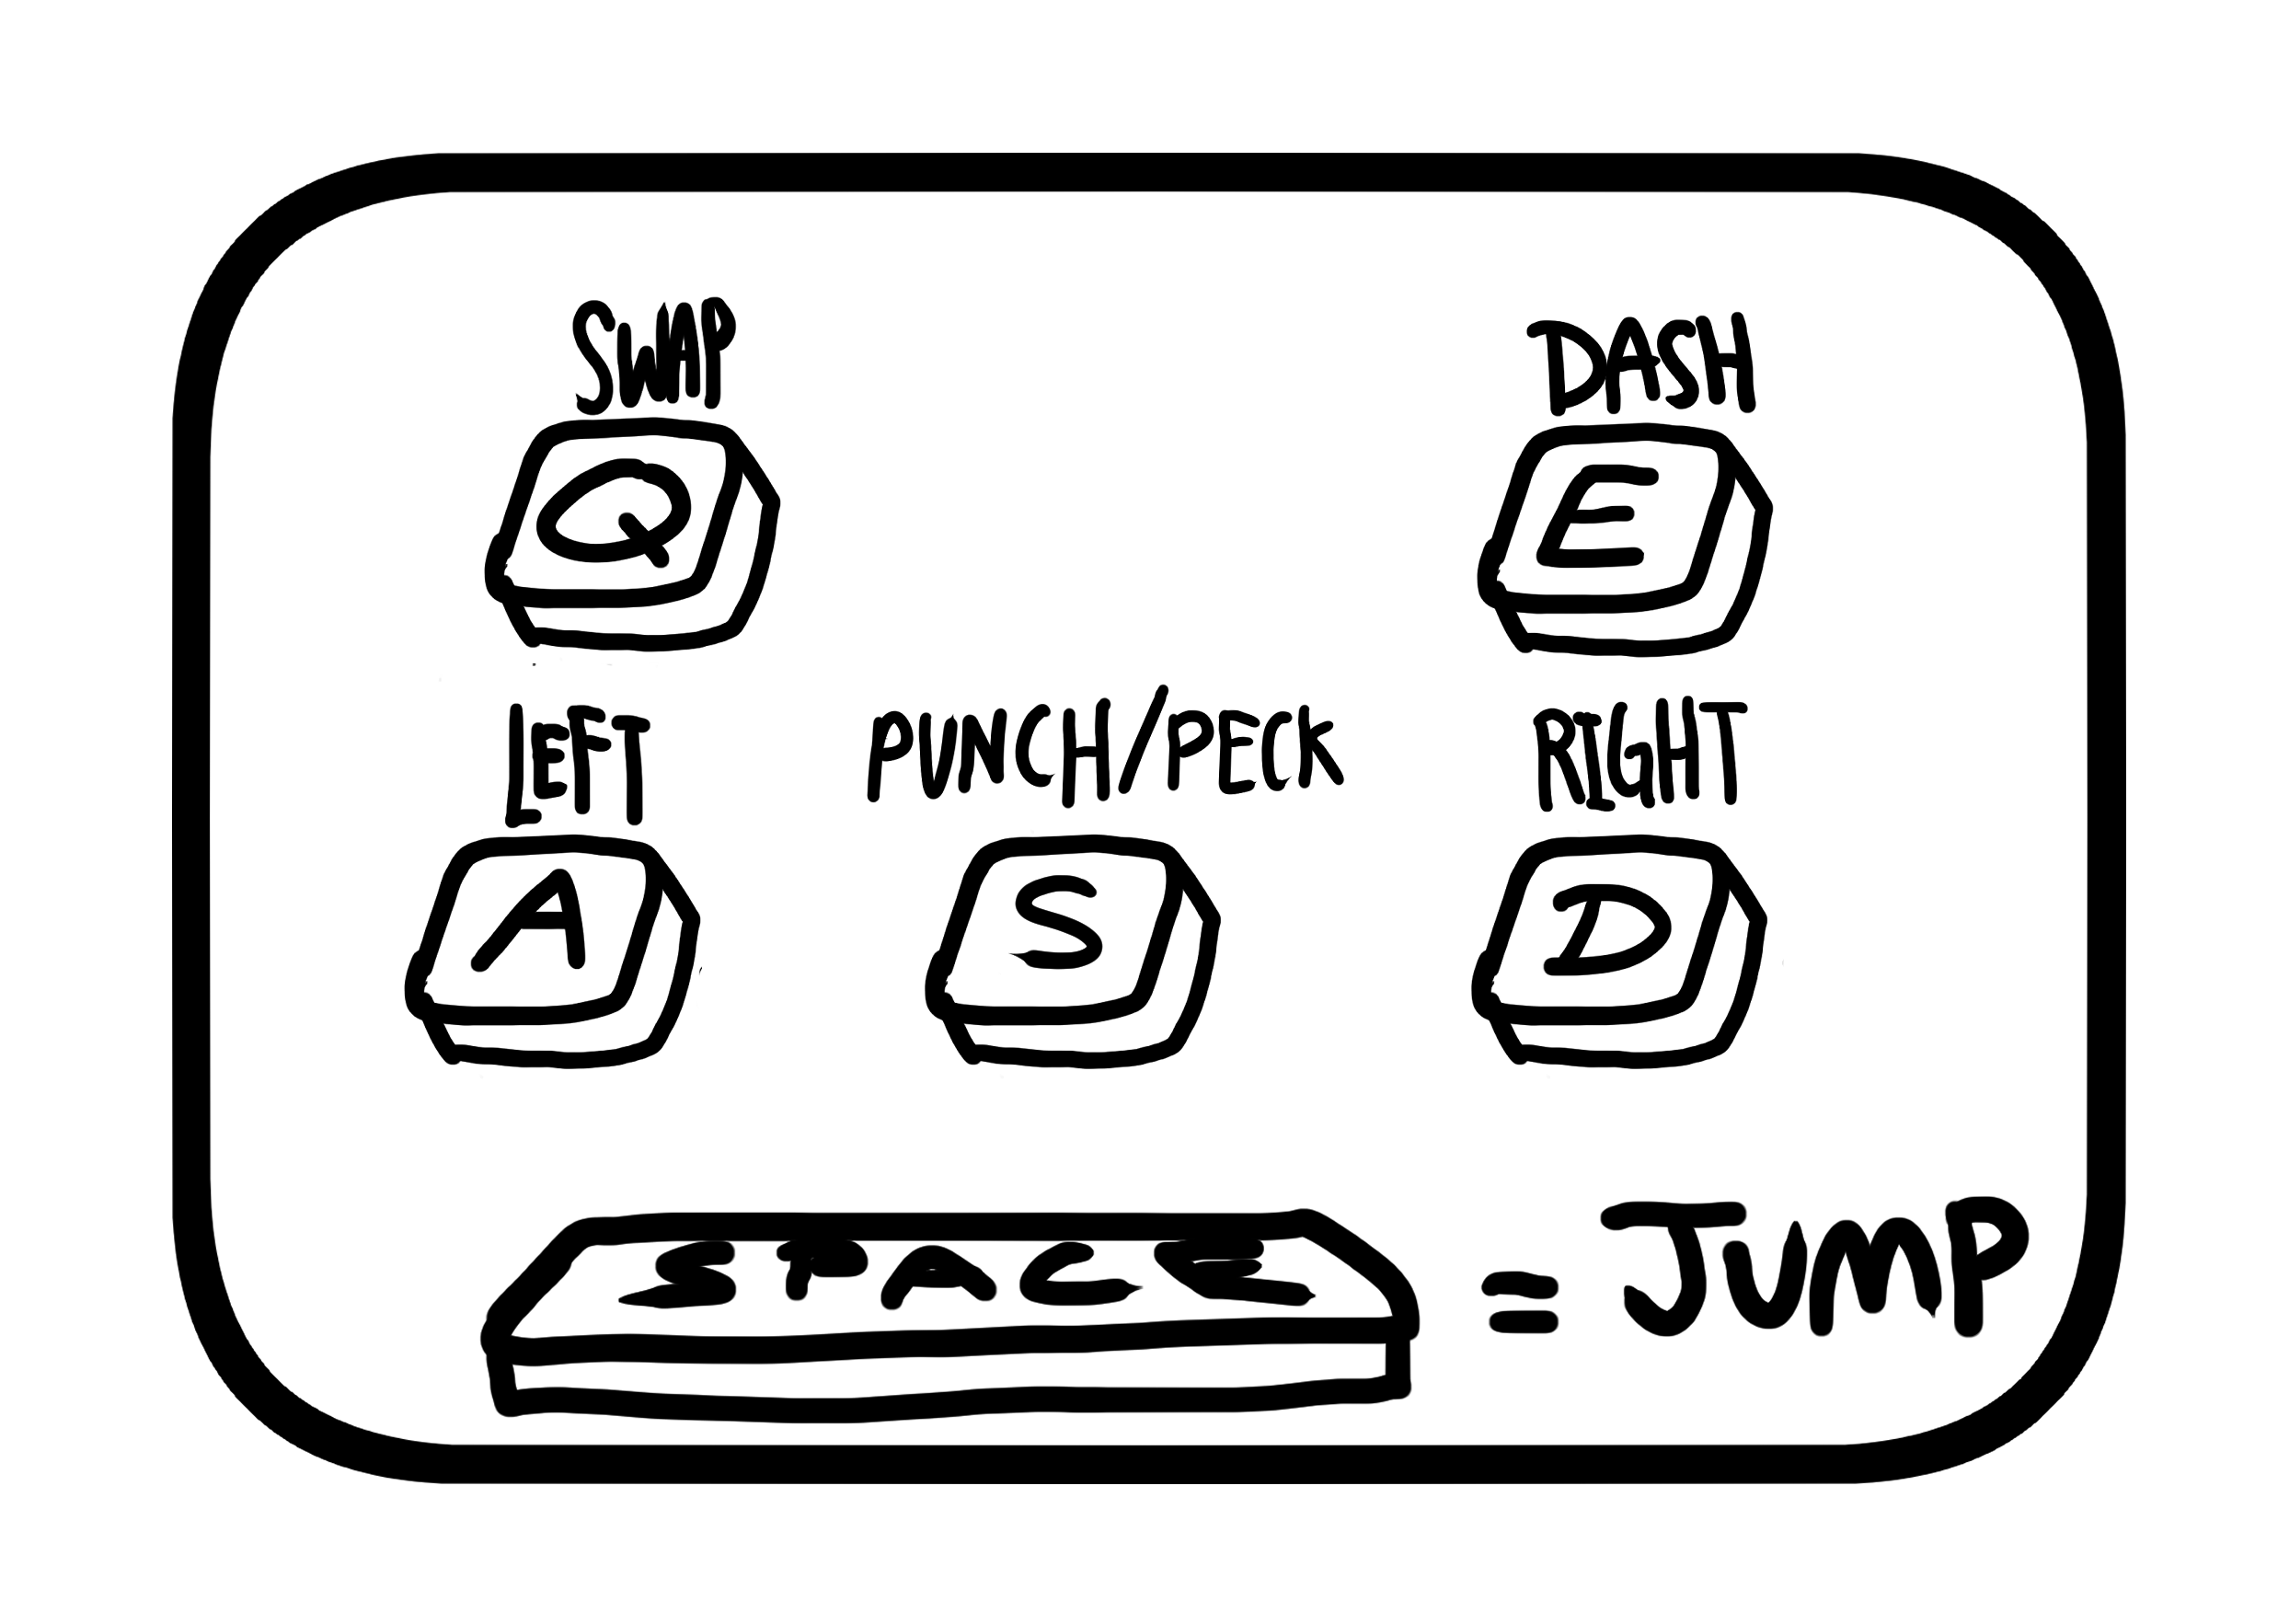 SWAP DASH
Q E
LEFT PUNCH/PECK RIGHT
A S D
SPACE = JUMP